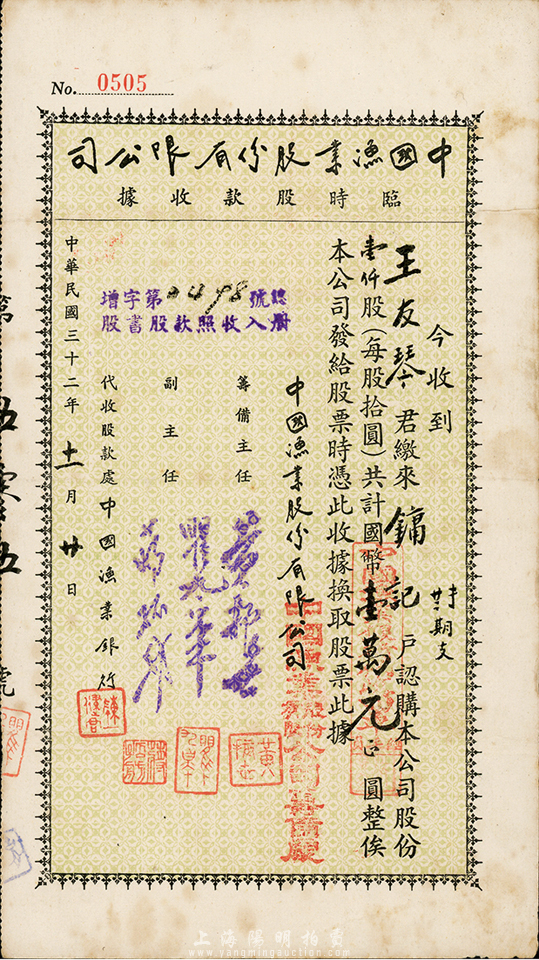 No. 0505
中國漁業股份有限公司
臨時股款收據
今收到
王友琴君繳來鏞記戶認購本公司股份
廿二期支
壹仟股（每股拾圓）共計國幣壹萬元正圓整俟
本公司發給股票時憑此收據換取股票此據
中國漁業股份有限公司
籌備主任
副主任
增字第2498號
股書股款照收入册
代收股款處中國漁業銀行
中華民國三十二年十一月廿日
第五零五號
上海陽明拍賣
www.yangmingauction.com